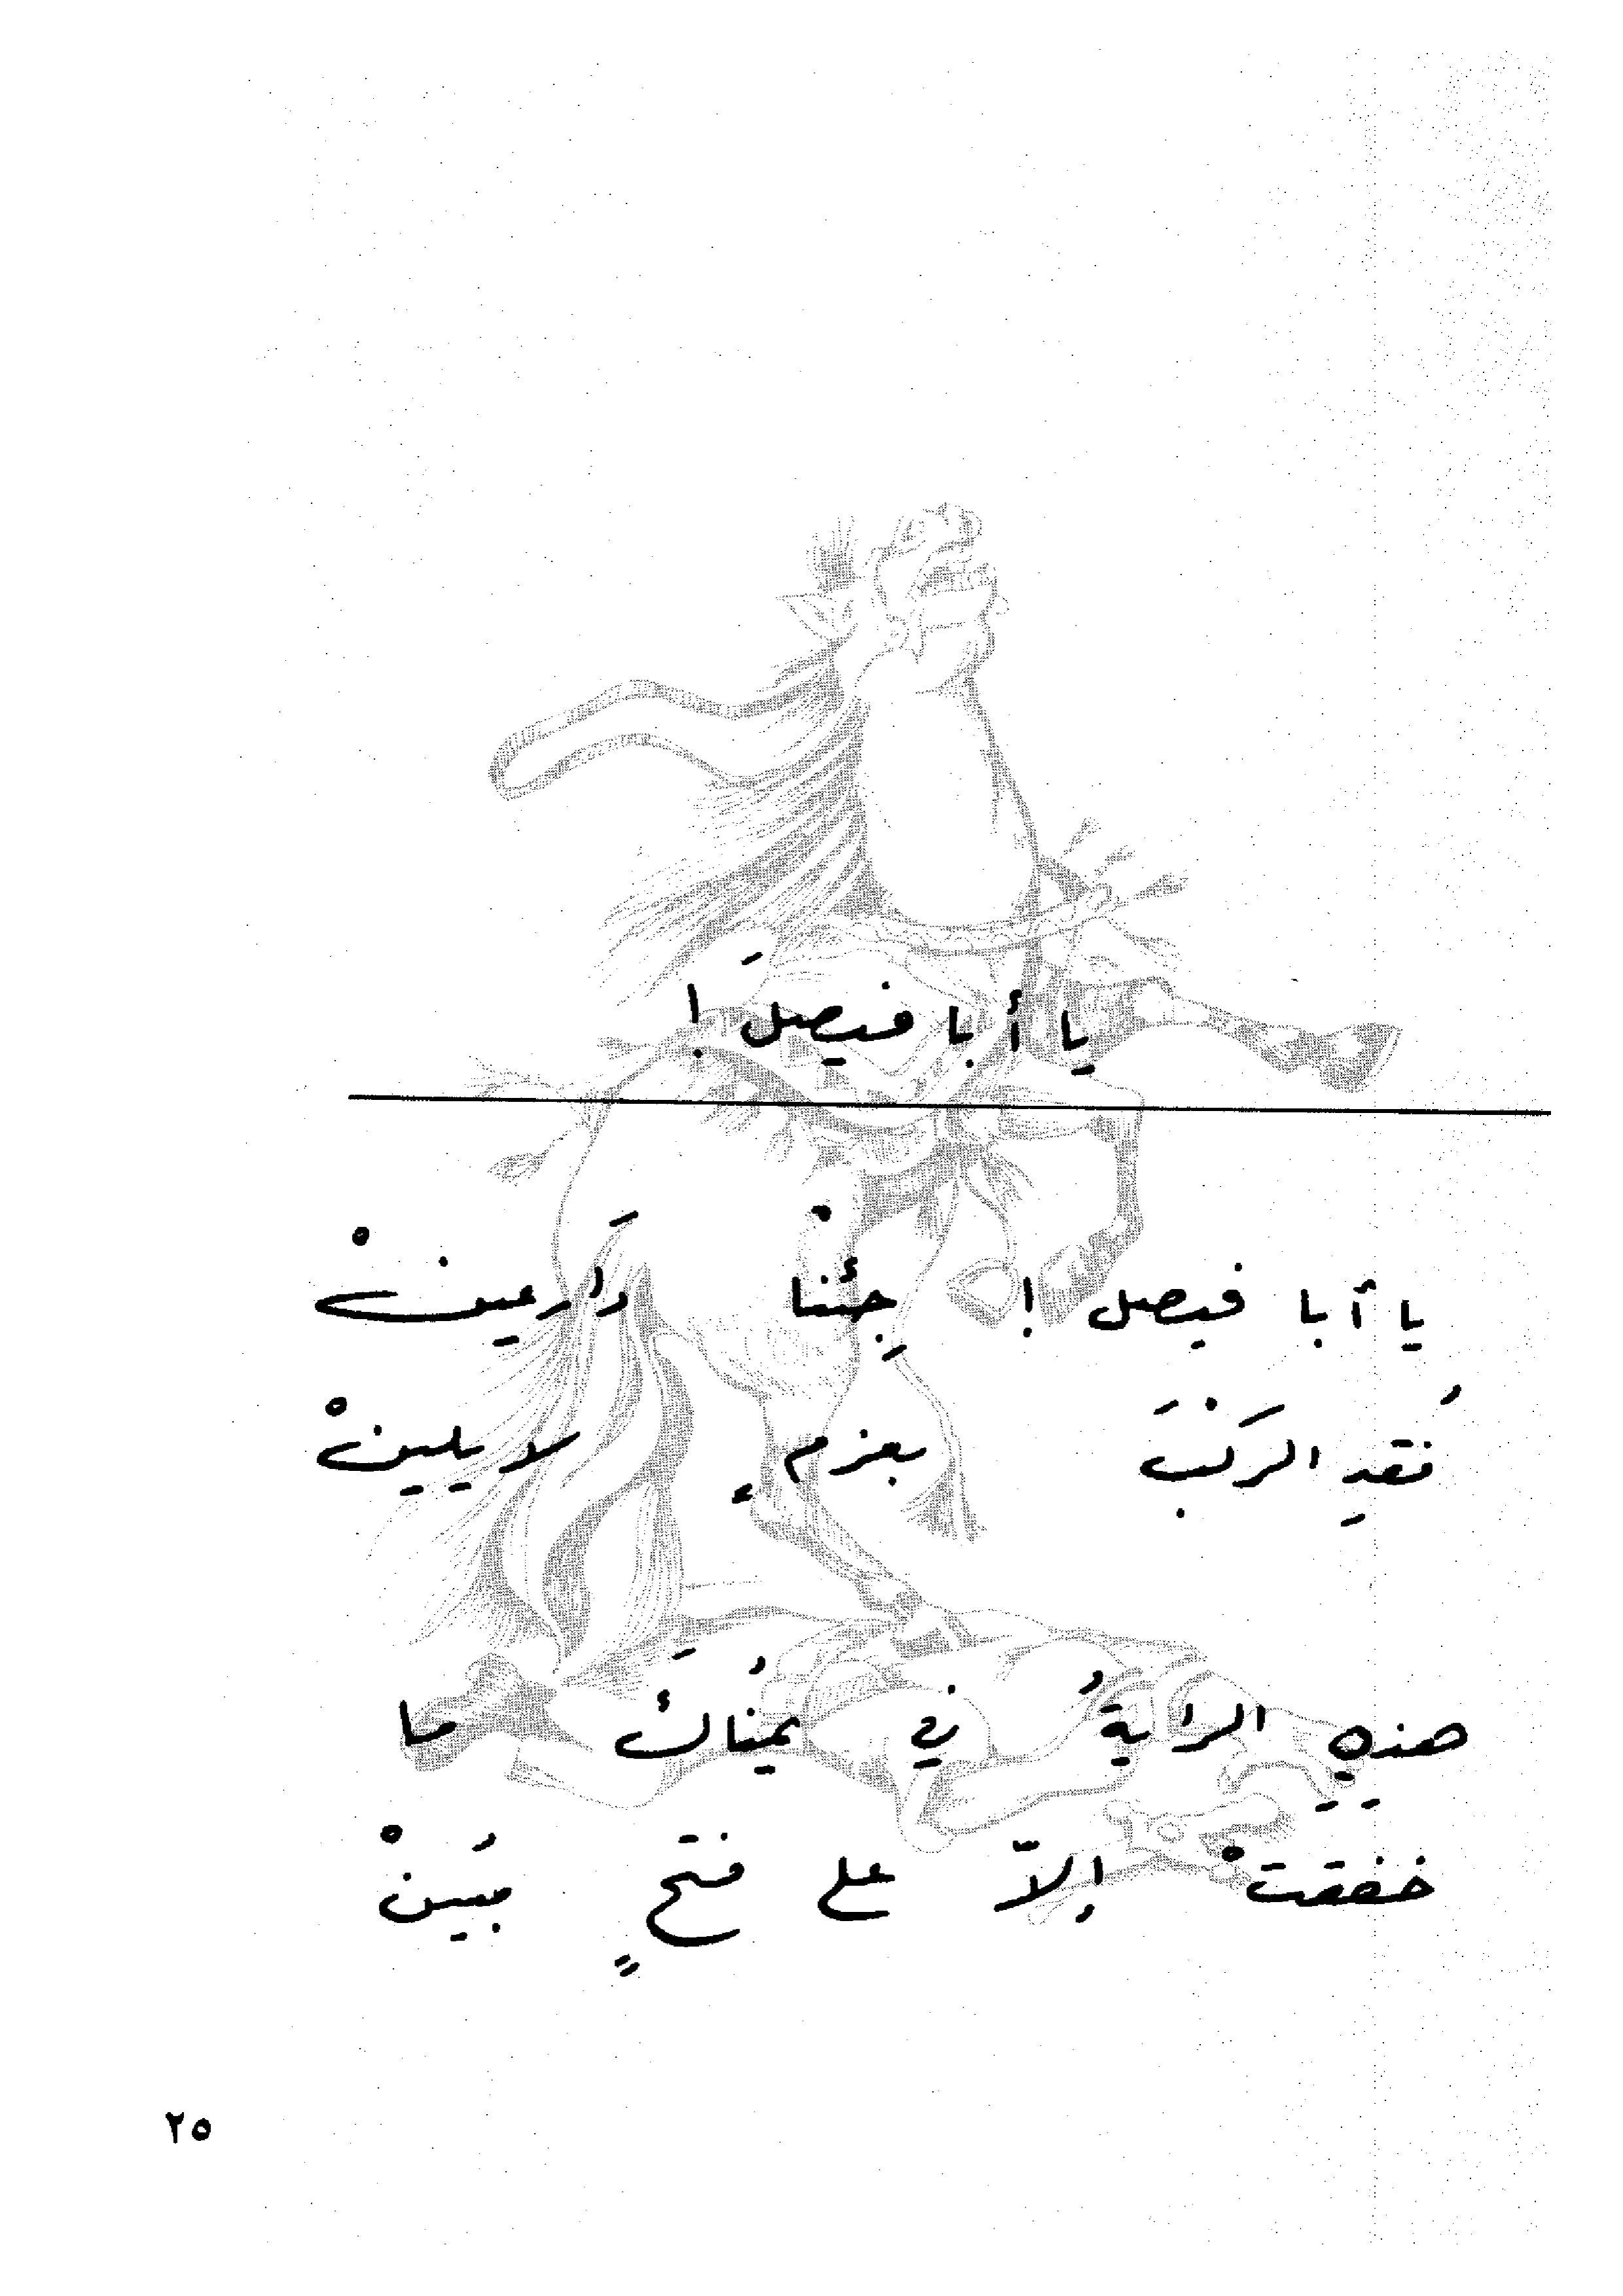 يا أبا فيصلَ !
يا أبا فيصل ! جِئْنا دَارعينْ
فقُدِ الرَكْبَ بعزمٍ لا يلينْ
هذهِ الرايةُ في يُمناكَ ما
خفقتْ إلاّ على فتحٍ مُبينْ
٢٥